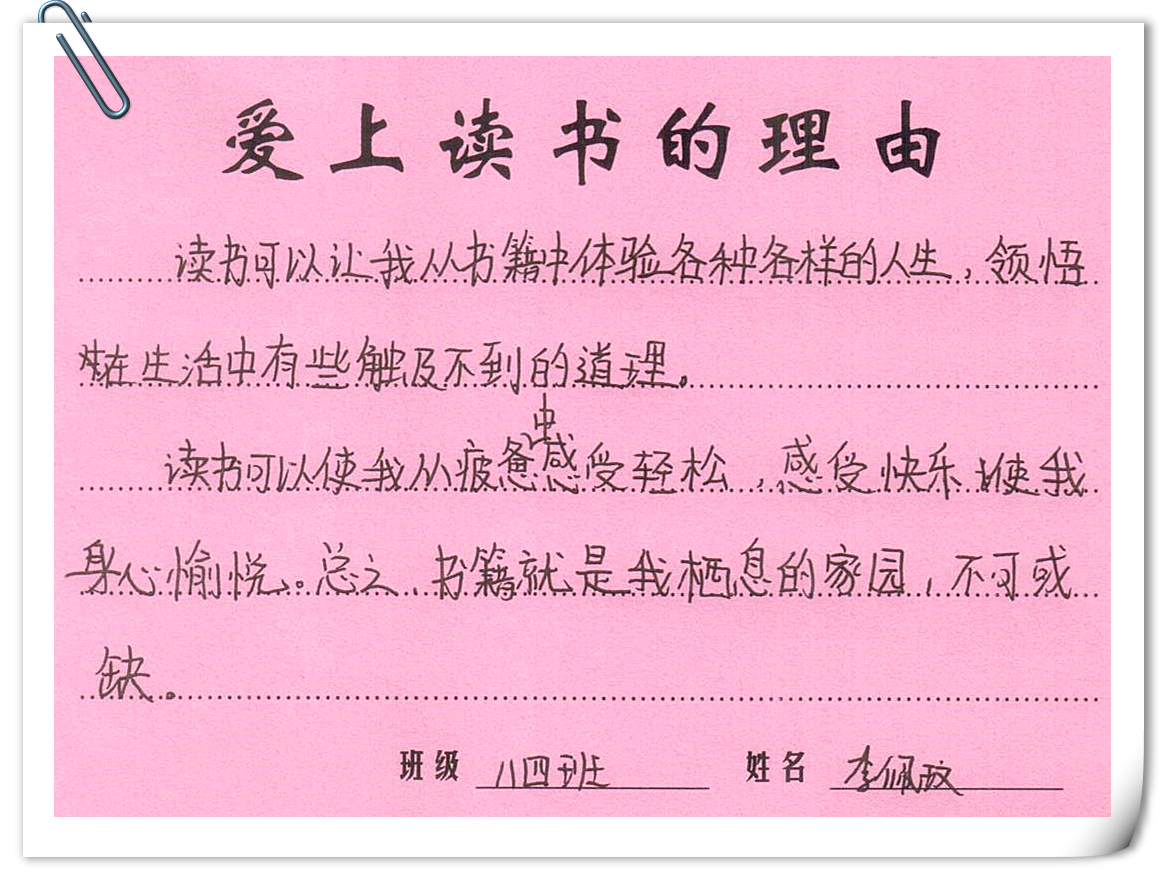 爱上读书的理由
读书可以让我从书籍中体验各种各样的人生，领悟
在生活中有些触及不到的道理。
中
读书可以使我从疲惫感受轻松，感受快乐使我
身心愉悦。总之、书籍就是我栖息的家园，不可或
缺。
班级 八四班 姓名 李佩玟